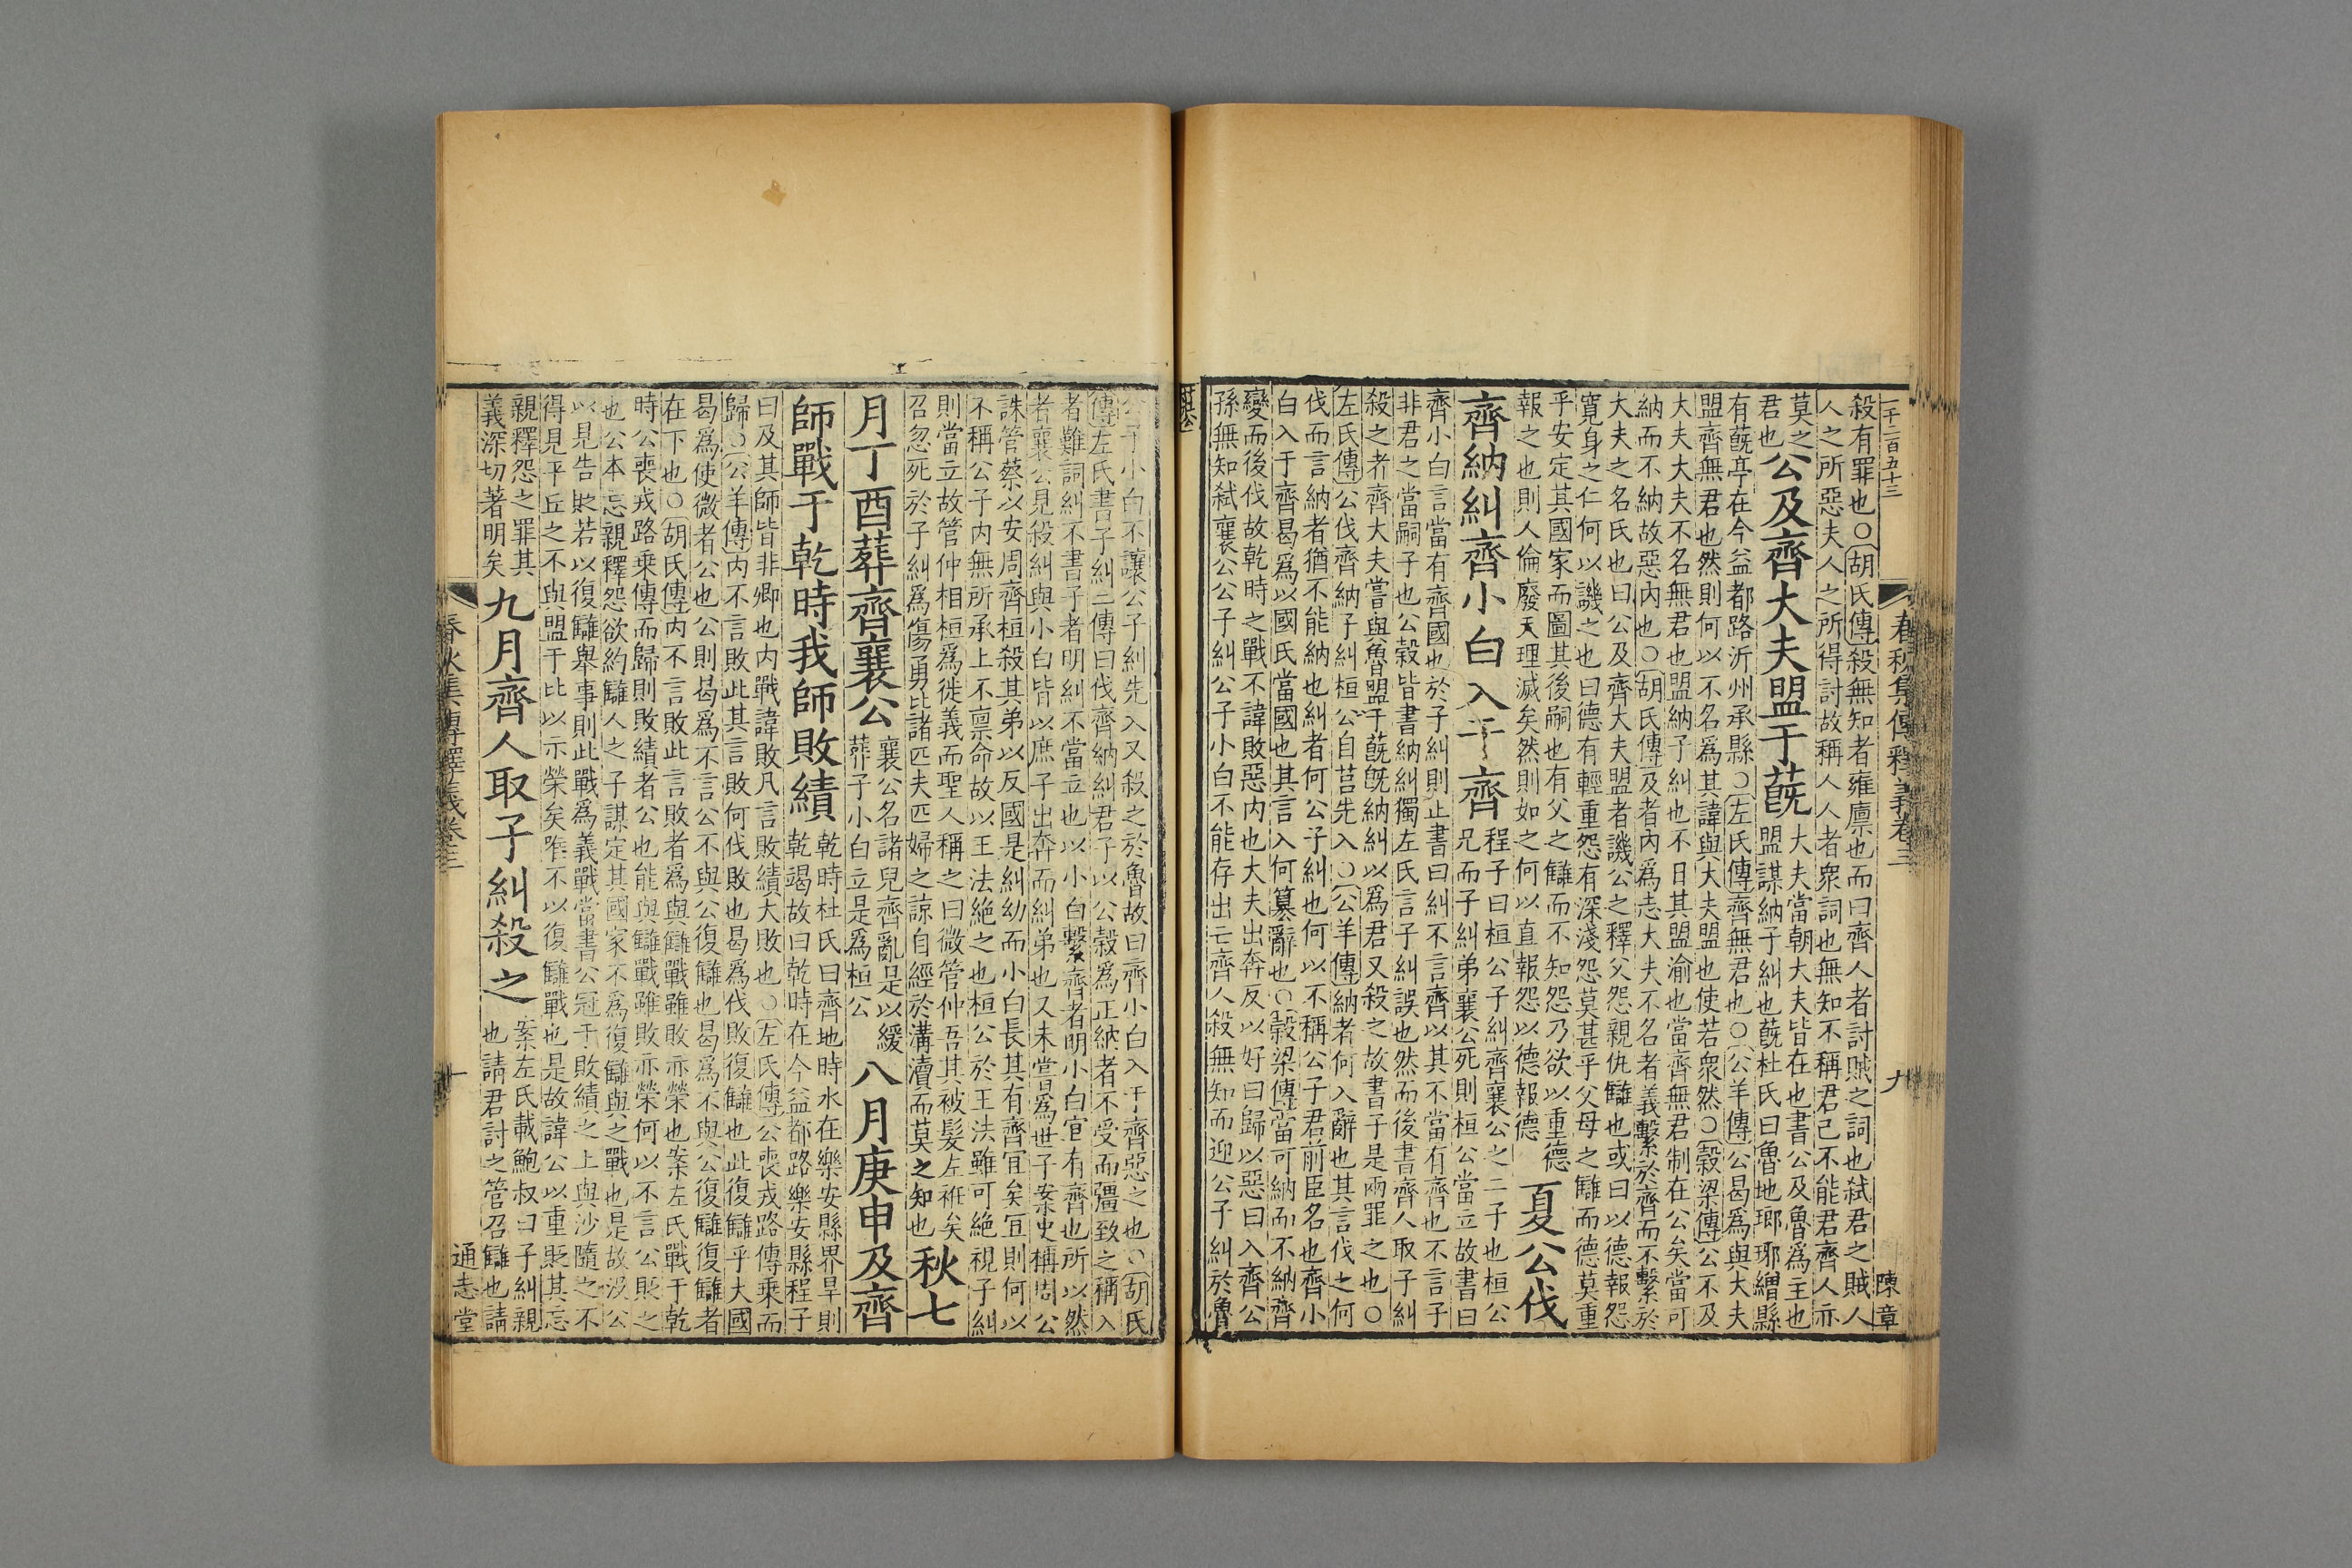 一千二百五十三
春秋集傳釋義卷三
九
陳章
殺有罪也○胡氏傳殺無知者雍廩也而曰齊人者討賊之詞也弒君之賊人
人之所惡夫人之所得討故稱人人者衆詞也無知不稱君已不能君齊人亦
莫之君也
公及齊大夫盟于蔇
大夫當朝大夫皆在也書公及魯爲主也
盟謀納子糾也蔇杜氏曰魯地瑯琊繒縣
有蔇亭在今益都路沂州承縣○左氏傳齊無君也○公羊傳公曷爲與大夫
盟齊無君也然則何以不名爲其諱與大夫盟也使若衆然○穀梁傳公不及
大夫大夫不名無君也盟納子糾也不日其盟渝也當齊無君制在公矣當可
納而不納故惡內也○胡氏傳及者內爲志大夫不名者義繫於齊而不繫於
大夫之名氏也曰公及齊大夫盟者譏公之釋父怨親仇讎也或曰以德報怨
寬身之仁何以譏之也曰德有輕重怨有深淺怨莫甚乎父母之讎而德莫重
乎安定其國家而圖其後嗣也有父之讎而不知怨乃欲以重德
報之也則人倫廢天理滅矣然則如之何以直報怨以德報德
夏公伐
齊納糾齊小白入于齊
程子曰桓公子糾齊襄公之二子也桓公
兄而子糾弟襄公死則桓公當立故書曰
齊小白言當有齊國也於子糾則止書曰糾不言齊以其不當有齊也不言子
非君之當嗣子也公穀皆書納糾獨左氏言子糾誤也然而後書齊人取子糾
殺之者齊大夫嘗與魯盟于蔇旣納糾以爲君又殺之故書子是兩罪之也○
左氏傳公伐齊納子糾桓公自莒先入○公羊傳納者何入辭也其言伐之何
伐而言納者猶不能納也糾者何公子糾也何以不稱公子君前臣名也齊小
白入于齊曷爲以國氏當國也其言入何篡辭也○穀梁傳當可納而不納齊
變而後伐故乾時之戰不諱敗惡內也大夫出奔反以好曰歸以惡曰入齊公
孫無知弒襄公公子糾公子小白不能存出亡齊人殺無知而迎公子糾於魯
公子小白不讓公子糾先入又殺之於魯故曰齊小白入于齊惡之也○胡氏
傳左氏書子糾二傳曰伐齊納糾君子以公穀爲正納者不受而彊致之稱入
者難詞糾不書子者明糾不當立也以小白繫齊者明小白宜有齊也所以然
者襄公見殺糾與小白皆以庶子出奔而糾弟也又未嘗爲世子案史稱周公
誅管蔡以安周齊桓殺其弟以反國是糾幼而小白長其有齊宜矣宜則何以
不稱公子內無所承上不禀命故以王法絶之也桓公於王法雖可絶視子糾
則當立故管仲相桓爲徙義而聖人稱之曰微管仲吾其被髮左衽矣
召忽死於子糾爲傷勇比諸匹夫匹婦之諒自經於溝瀆而莫之知也
秋七
月丁酉葬齊襄公
襄公名諸兒齊亂是以緩
葬子小白立是爲桓公
八月庚申及齊
師戰于乾時我師敗績
乾時杜氏曰齊地時水在樂安縣界旱則
乾竭故曰乾時在今益都路樂安縣程子
曰及其師皆非卿也内戰諱敗凡言敗績大敗也○左氏傳公喪戎路傳乘而
歸○公羊傳內不言敗此其言敗何伐敗也曷爲伐敗復讎也此復讎乎大國
曷爲使微者公也公則曷爲不言公不與公復讎也曷爲不與公復讎復讎者
在下也○胡氏傳內不言敗此言敗者爲與讎戰雖敗亦榮也案左氏戰于乾
時公喪戎路乘傳而歸則敗績者公也能與讎戰雖敗亦榮何以不言公貶之
也公本忘親釋怨欲約讎人之子謀定其國家不爲復讎與之戰也是故沒公
以見告貶若以復讎舉事則此戰爲義戰當書公冠于敗績之上與沙隨之不
得見平丘之不與盟于比以示榮矣唯不以復讎戰也是故諱公以重貶其忘
親釋怨之罪其
義深切著明矣
九月齊人取子糾殺之
案左氏載鮑叔曰子糾親
也請君討之管召讎也請
春秋集傳釋義卷三
十
通志堂